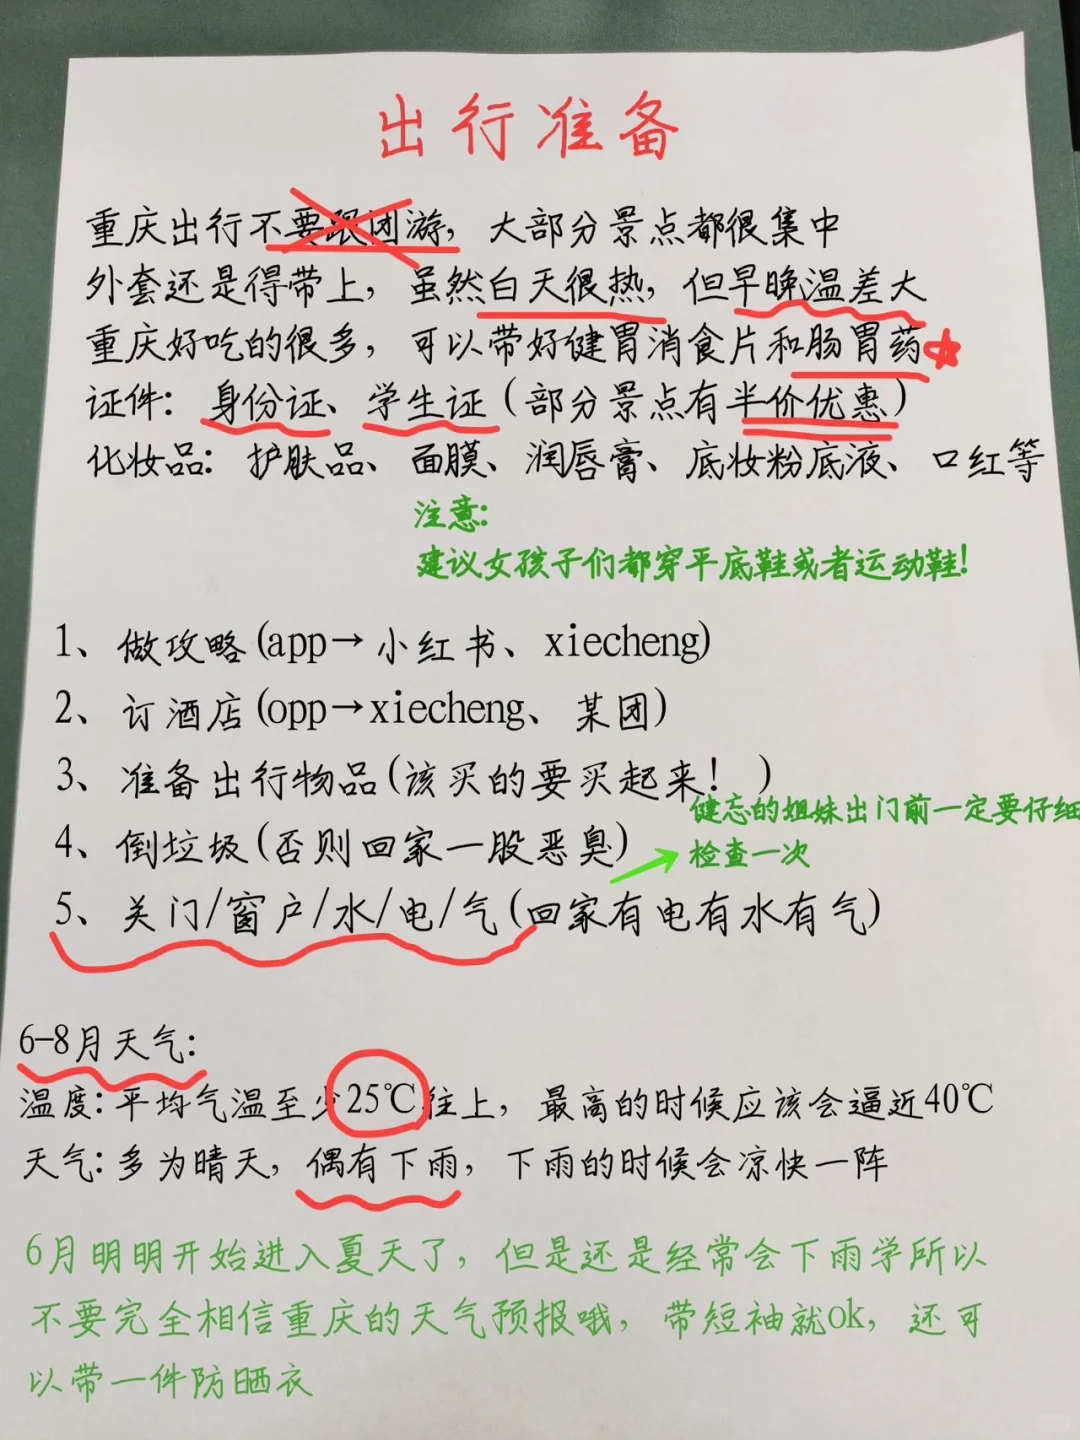 出行准备
重庆出行不要跟团游，大部分景点都很集中
外套还是得带上，虽然白天很热，但早晚温差大
重庆好吃的很多，可以带好健胃消食片和肠胃药
证件：身份证、学生证（部分景点有半价优惠）
化妆品：护肤品、面膜、润唇膏、底妆粉底液、口红等
注意：
建议女孩子们都穿平底鞋或者运动鞋！
1、做攻略(app→小红书、xiecheng)
2、订酒店(opp→xiecheng、某团)
3、准备出行物品(该买的要买起来！)
4、倒垃圾(否则回家一股恶臭)
健忘的姐妹出门前一定要仔细
检查一次
5、关门/窗户/水/电/气(回家有电有水有气)
6-8月天气：
温度：平均气温至少25℃往上，最高的时候应该会逼近40℃
天气：多为晴天，偶有下雨，下雨的时候会凉快一阵
6月明明开始进入夏天了，但是还是经常会下雨学所以
不要完全相信重庆的天气预报哦，带短袖就ok，还可
以带一件防晒衣